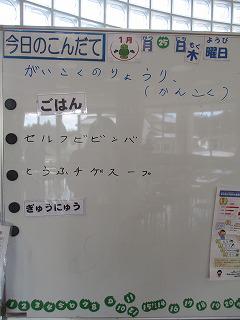 今日のこんだて 1月 25日 木 曜日
がいこくのりょうり
(かんこく)
ごはん
セルフビビンバ
とうふチゲスープ
ぎゅうにゅう